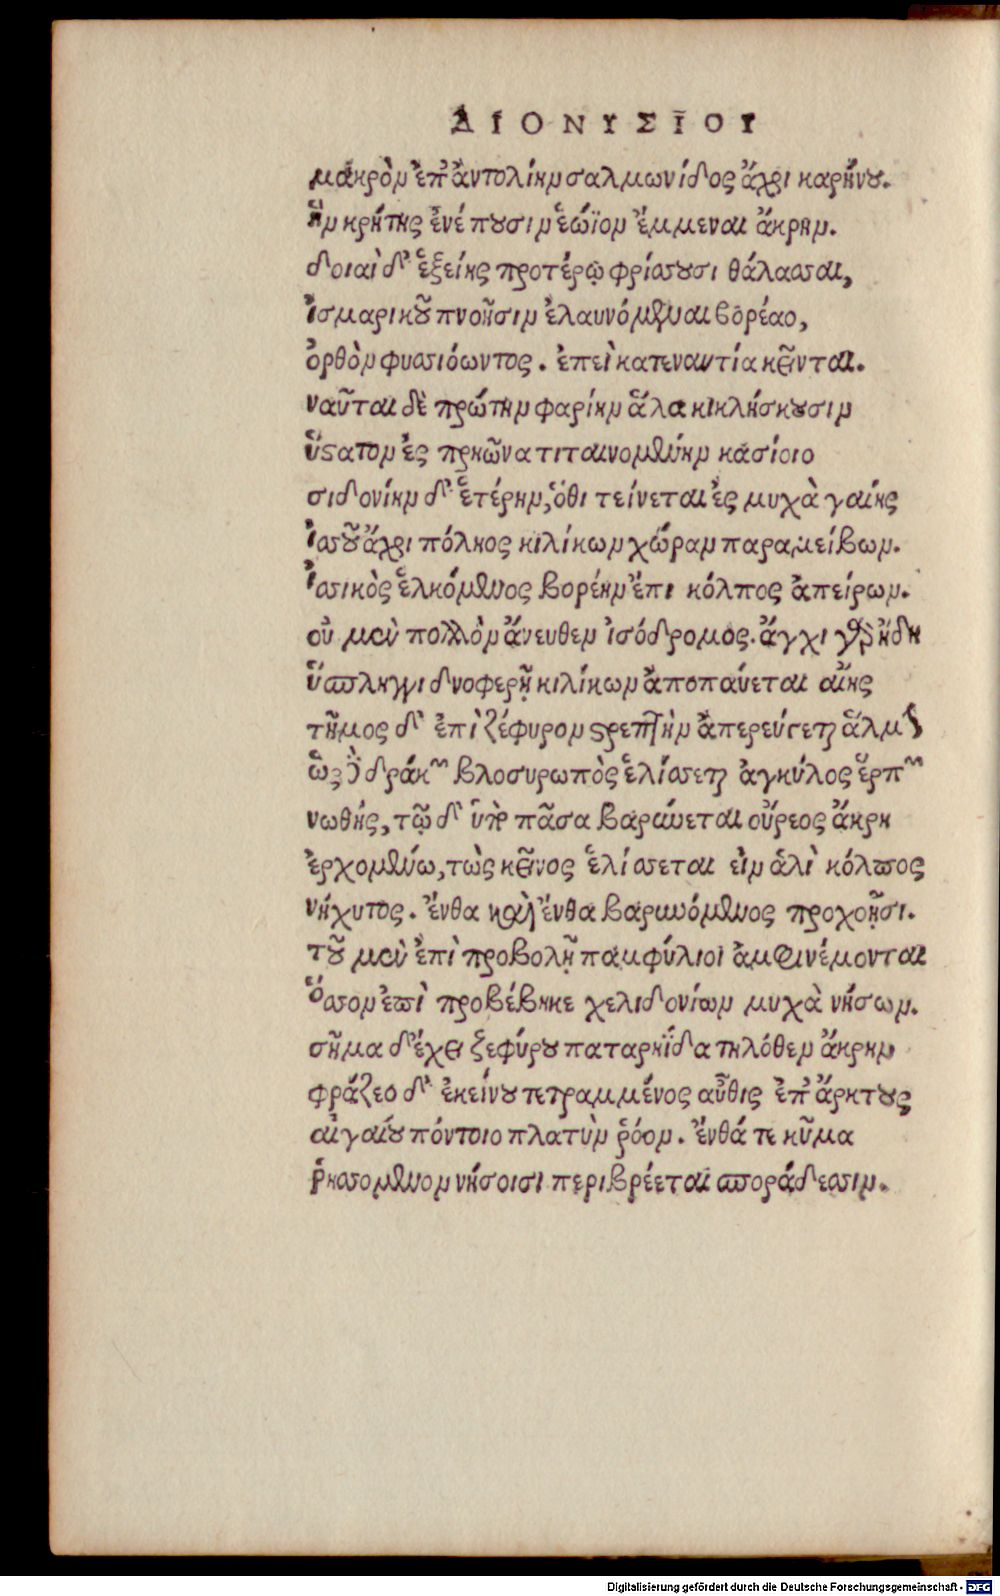 ΔΙΟΝΥΣΙΟΥ
μακρὸν ἐπ' ἀντολίην σαλμωνίδος ἄχρι καρήνου.
ἣν κρήτης ἐνέπουσιν ἑώϊον ἔμμεναι ἄκρην.
δοιαὶ δ' ἑξείης προτέρῳ φρίσσουσι θάλασσαι,
ἰσμαρικοῦ πνοῇσιν ἐλαυνόμεναι βορέαο,
ὀρθὸν φυσιόωντος. ἐπεὶ κατεναντία κεῖνται.
ναῦται δὲ πρώτην φαρίην ἅλα κικλήσκουσιν
ὕστατον ἐς πρηῶνα τιταινομένην κασίοιο
σιδονίην δ' ἑτέρην, ὅθι τείνεται ἐς μυχὰ γαίης
ἰσσοῦ ἄχρι πόληος κιλίκων χώραν παραμείβων.
ἰσσικὸς ἑλκόμενος βορέην ἔπι κόλπος ἀπείρων.
οὐ μὲν πολλὸν ἄνευθεν ἰσόδρομος. ἄγχι γὰρ ἤδη
ὕσπληγγι δνοφερῇ κιλίκων ἀποπαύεται αἴης
τῆμος δ' ἐπὶ ζέφυρον στρεπτὴν ἀπερεύγεται ἅλμην
ὡς δὲ δράκων βλοσυρωπὸς ἑλίσσεται ἀγκύλος ἕρπων
νωθής, τῷ δ' ὑπὸ πᾶσα βαρύνεται οὔρεος ἄκρη
ἐρχομένῳ, τὼς κεῖνος ἑλίσσεται εἰν ἁλὶ κόλπος
νήχυτος. ἔνθα καὶ ἔνθα βαρυνόμενος προχοῇσι.
τοῦ μὲν ἐπὶ προβολῇ παμφύλιοι ἀμφινέμονται
ὅσσον ἐπὶ προβέβηκε χελιδονίων μυχὰ νήσων.
σῆμα δ' ἔχει ζεφύρου παταρηΐδα τηλόθεν ἄκρην
φράζεο δ' ἐκείνου τετραμμένος αὖθις ἐπ' ἄρκτους
αἰγαίου πόντοιο πλατὺν ῥόον. ἔνθά τε κῦμα
ῥησσόμενον νήσοισι περιβρέεται σποράδεσσιν.
Digitalisierung gefördert durch die Deutsche Forschungsgemeinschaft - DFG